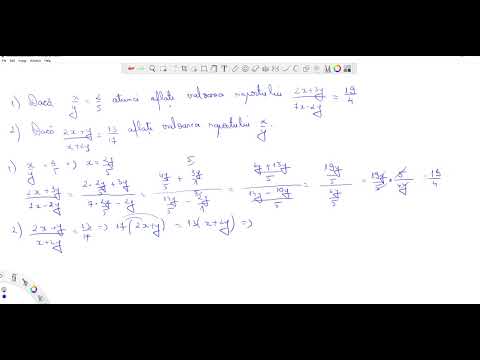 1) Dacă x/y = 2/5 atunci aflați valoarea raportului (2x+3y)/(7x-2y) = 19/4
2) Dacă (2x+y)/(x+2y) = 13/17 aflați valoarea raportului x/y.
1) x/y = 2/5 => x = 2y/5
(2x+3y)/(7x-2y) = (2·2y/5+3y)/(7·2y/5-2y) = (4y/5+3y/1)/(14y/5-2y/1) = ((4y+15y)/5)/((14y-10y)/5) = (19y/5)/(4y/5) = 19y/5 · 5/4y = 19/4
2) (2x+y)/(x+2y) = 13/17 => 17(2x+y) = 13(x+2y) =>